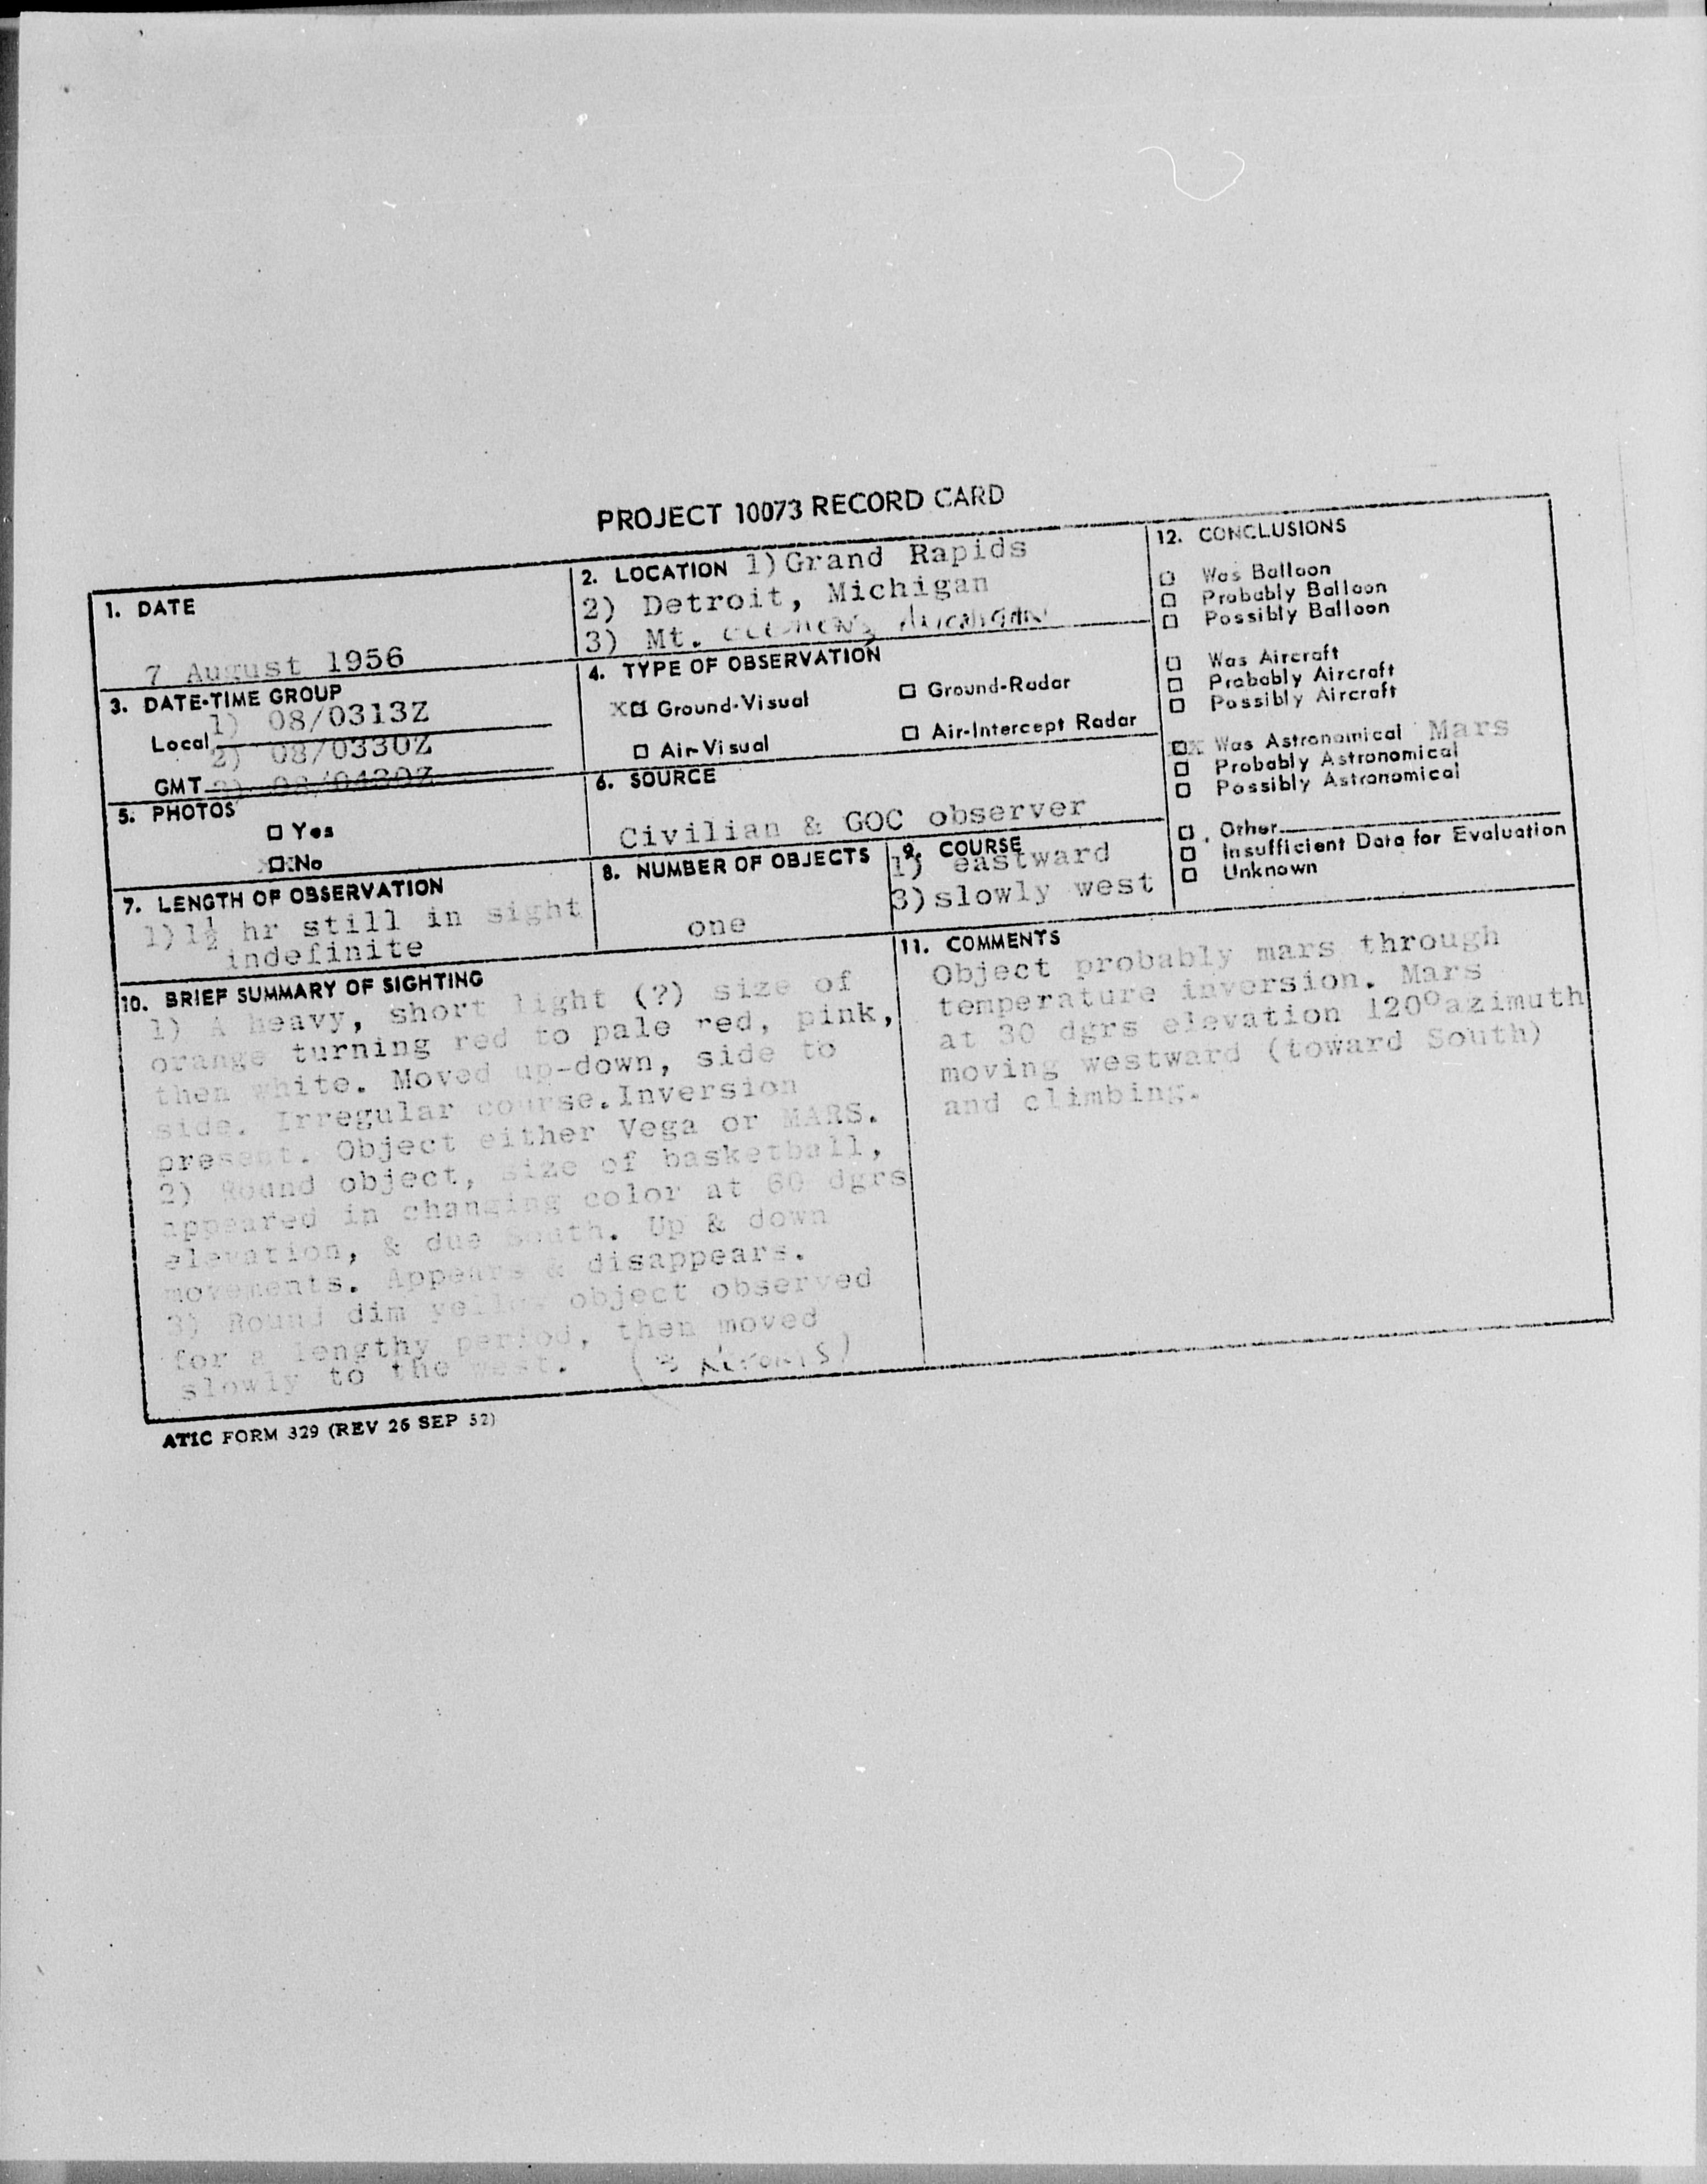 PROJECT 10073 RECORD CARD
1. DATE
7 August 1956
2. LOCATION 1) Grand Rapids
2) Detroit, Michigan
3) Mt. Clemens, Michigan
3. DATE-TIME GROUP
1) 08/0313Z
Local
2) 08/0330Z
GMT 3) 08/0430Z
4. TYPE OF OBSERVATION
X Ground-Visual
Ground-Radar
Air-Visual
Air-Intercept Radar
5. PHOTOS
Yes
XX No
6. SOURCE
Civilian & GOC observer
7. LENGTH OF OBSERVATION
1) 1½ hr still in sight
indefinite
8. NUMBER OF OBJECTS
one
9. COURSE
1) eastward
3) slowly west
10. BRIEF SUMMARY OF SIGHTING
1) A heavy, short light (?) size of
orange turning red to pale red, pink,
then white. Moved up-down, side to
side. Irregular course. Inversion
present. Object either Vega or MARS.
2) Round object, size of basketball,
appeared in changing color at 60 dgrs
elevation, & due South. Up & down
movements. Appears & disappears.
3) Round dim yellow object observed
for a lengthy period, then moved
slowly to the west. (3 REPORTS)
11. COMMENTS
Object probably mars through
temperature inversion. Mars
at 30 dgrs elevation 120° azimuth
moving westward (toward South)
and climbing.
12. CONCLUSIONS
Was Balloon
Probably Balloon
Possibly Balloon
Was Aircraft
Probably Aircraft
Possibly Aircraft
XX Was Astronomical Mars
Probably Astronomical
Possibly Astronomical
Other
Insufficient Data for Evaluation
Unknown
ATIC FORM 329 (REV 26 SEP 52)